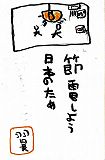 節電しよう
日本のため